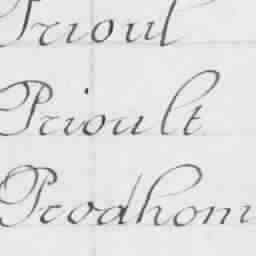 Prioul
Prioult
Prodhom